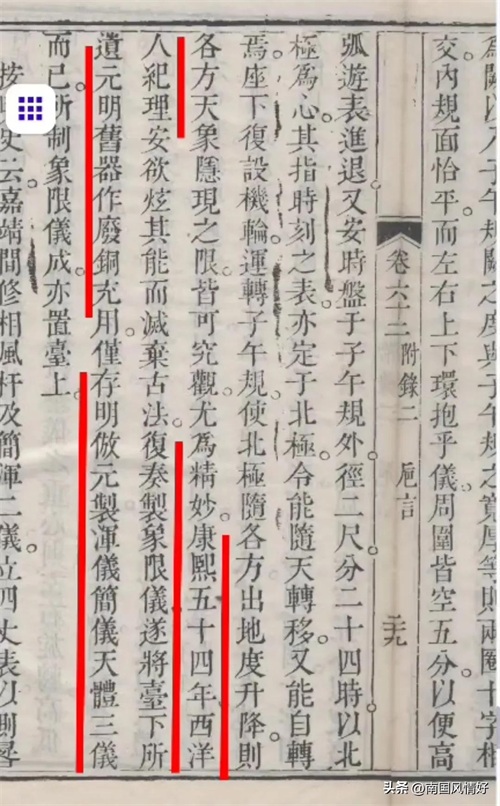 為闕以入子午規闕之度與子午規之厚兩十字相
交內規面恰平而左右上下環抱乎儀。周圍皆空五分以便高
卷六十二 附錄二 卮言
弧遊表進退。又安時盤于子午規外。徑二尺分二十四時以北
極爲心。其指時刻之表亦定于北極。令能隨天轉移。又能自轉
焉。座下復設機輪。運轉子午規。使北極隨各方出地度升降。則
各方天象隱現之限皆可究觀。尤爲精妙。康熙五十四年西洋
人紀理安欲炫其能而滅棄古法。復奏製象限儀。遂將臺下所
遺元明舊器作廢銅充用。僅存明倣元製渾儀簡儀天體三儀
而已。所制象限儀成。亦置臺上。
按明史云嘉靖間修相風杆及簡渾二儀。立四丈表以測晷
頭条 @南国风情好